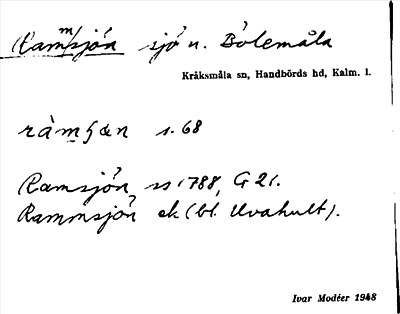 Ram/msjön sjö n. Bölemåla
Kråksmåla sn, Handbörds hd, Kalm. l.
ràmʃɶn s. 68
Ramsjön ss 1788, G 21.
Rammsjön ek (bl. Uvahult).
Ivar Modéer 1948